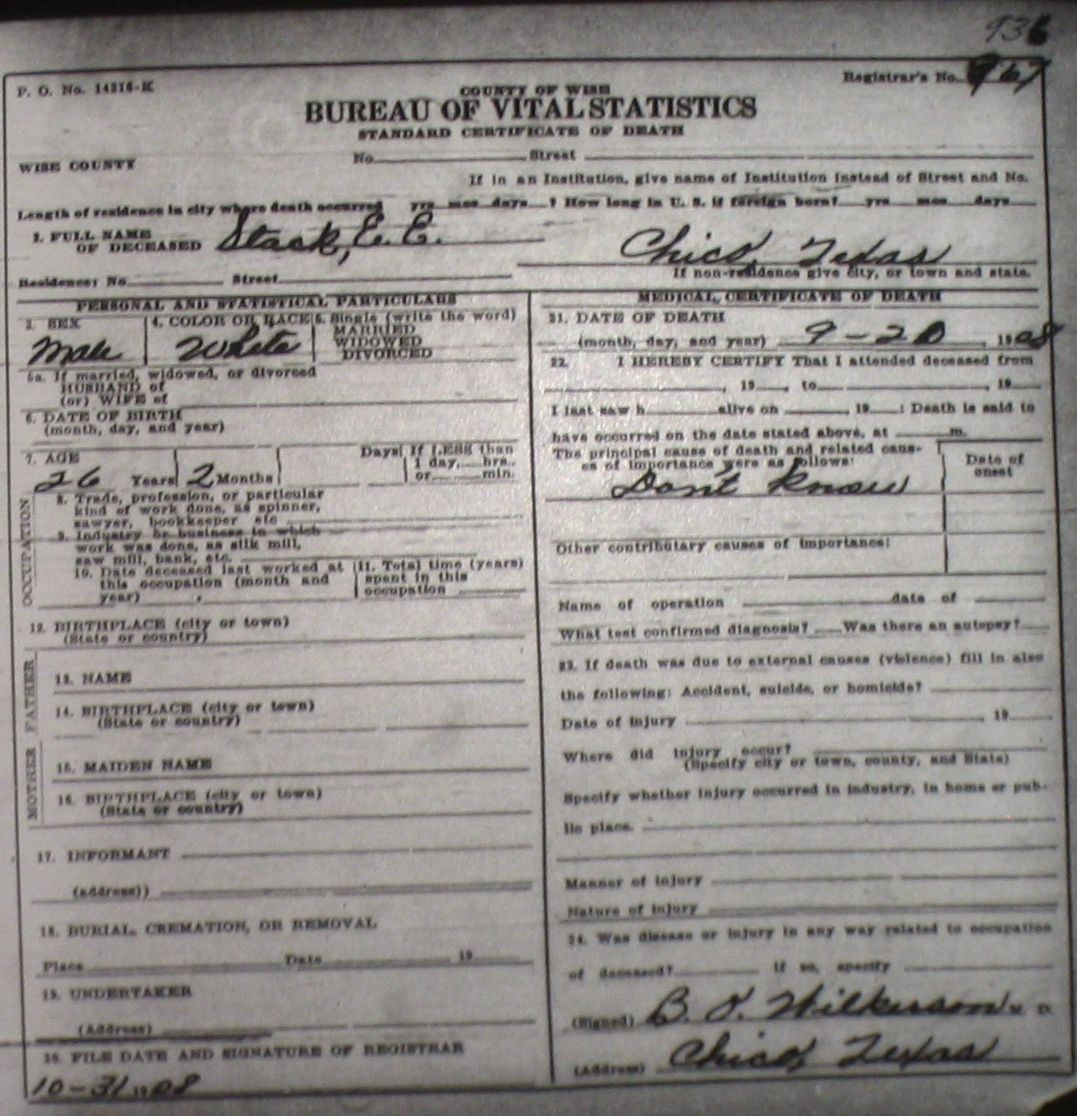 936
P. O. No. 14216-K
Registrar's No. 967
COUNTY OF WISE
BUREAU OF VITAL STATISTICS
STANDARD CERTIFICATE OF DEATH
WISE COUNTY No. Street
If in an Institution, give name of Institution instead of Street and No.
Length of residence in city where death occurred yrs mos days ? How long in U. S. if foreign born? yrs mos days
2. FULL NAME OF DECEASED Stack, E. E. Chico, Texas
Residence: No. Street If non-residence give city, or town and state.
PERSONAL AND STATISTICAL PARTICULARS
3. SEX Male
4. COLOR OR RACE White
5. Single (write the word)
MARRIED
WIDOWED
DIVORCED
5a. If married, widowed, or divorced
HUSBAND of
(or) WIFE of
6. DATE OF BIRTH
(month, day, and year)
7. AGE 26 Years 2 Months Days If LESS than
1 day, hrs.
or min.
OCCUPATION
8. Trade, profession, or particular
kind of work done, as spinner,
sawyer, bookkeeper etc
9. Industry or business in which
work was done, as silk mill,
saw mill, bank, etc.
10. Date deceased last worked at
this occupation (month and
year)
11. Total time (years)
spent in this
occupation
12. BIRTHPLACE (city or town)
(State or country)
FATHER
13. NAME
14. BIRTHPLACE (city or town)
(State or country)
MOTHER
15. MAIDEN NAME
16. BIRTHPLACE (city or town)
(State or country)
17. INFORMANT
(address))
18. BURIAL, CREMATION, OR REMOVAL
Place Date 19
19. UNDERTAKER
(Address)
20. FILE DATE AND SIGNATURE OF REGISTRAR
10-31 1908
MEDICAL, CERTIFICATE OF DEATH
21. DATE OF DEATH
(month, day, and year) 9-20, 1908
22. I HEREBY CERTIFY That I attended deceased from
, 19 , to , 19
I last saw h alive on , 19 : Death is said to
have occurred on the date stated above, at m.
The principal cause of death and related caus-
es of importance were as follows:
Date of
onset
Dont Know
Other contributary causes of importance:
Name of operation date of
What test confirmed diagnosis? Was there an autopsy?
23. If death was due to external causes (violence) fill in also
the following: Accident, suicide, or homicide?
Date of injury 19
Where did injury occur?
(Specify city or town, county, and State)
Specify whether injury occurred in industry, in home or pub-
lic place.
Manner of injury
Nature of injury
24. Was disease or injury in any way related to occupation
of deceased? If so, specify
(Signed) Wilkerson M. D.
(Address) Chico, Texas